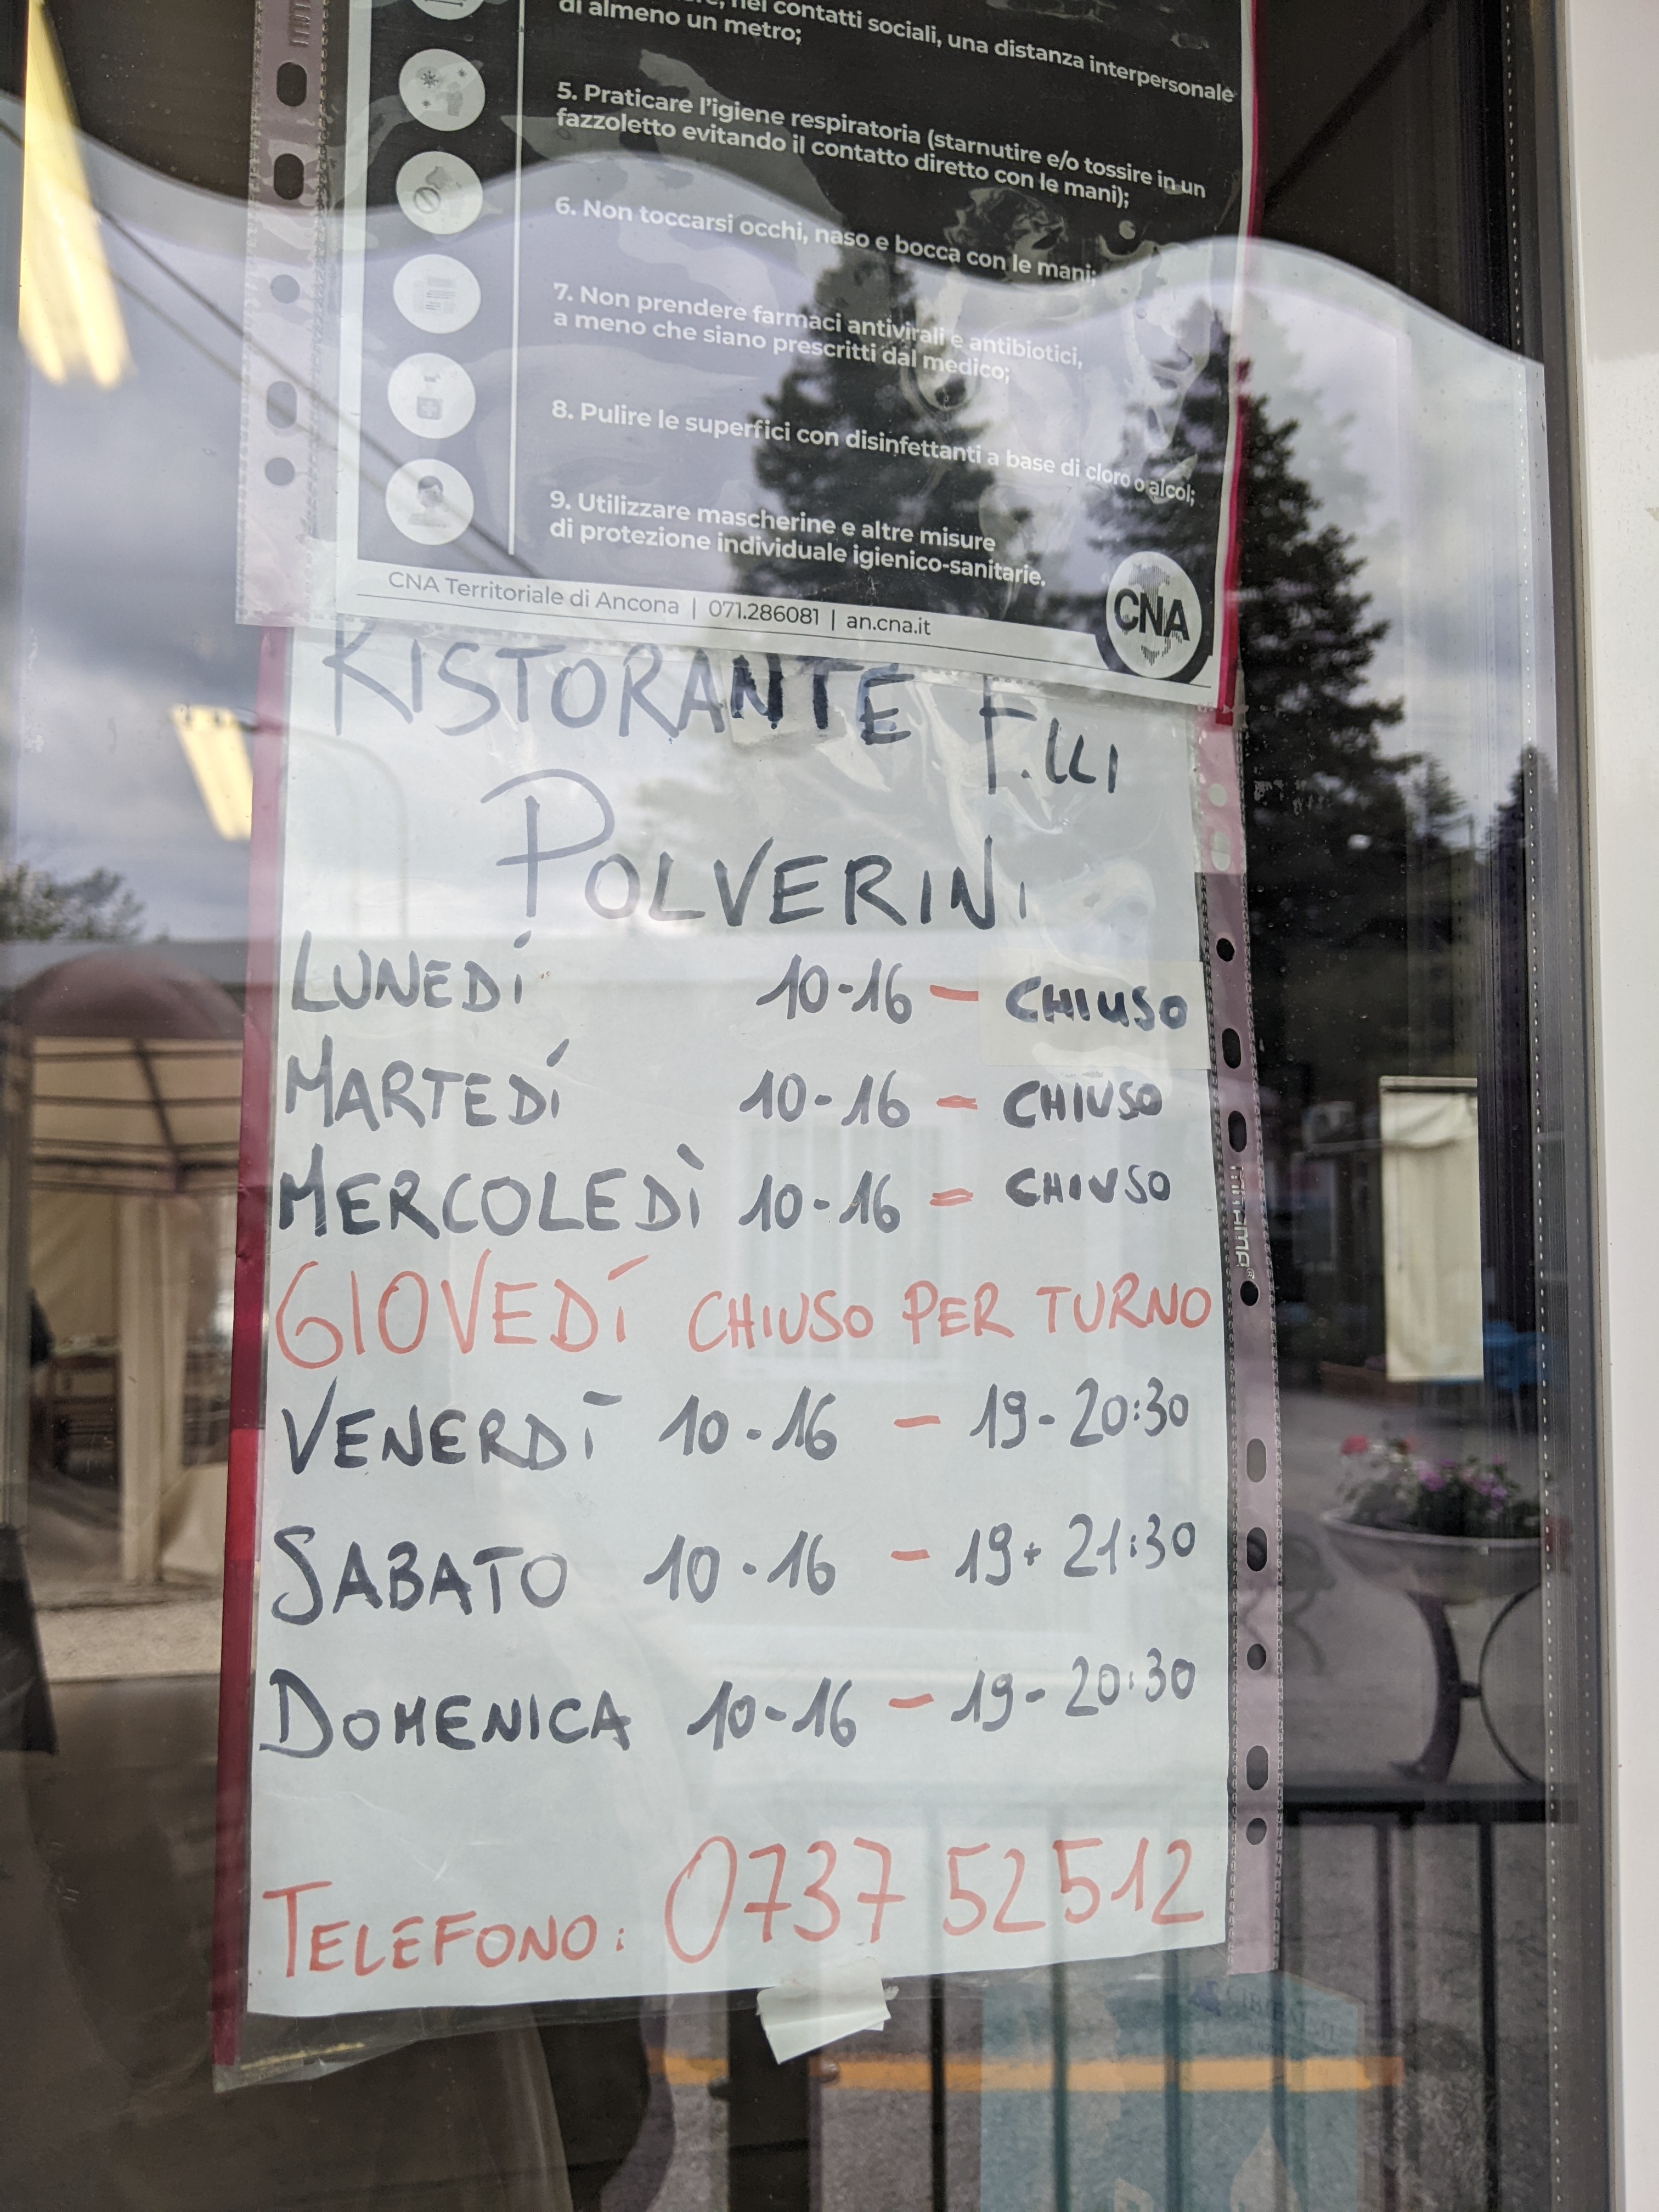 nei contatti sociali, una distanza interpersonale
di almeno un metro;
5. Praticare l'igiene respiratoria (starnutire e/o tossire in un
fazzoletto evitando il contatto diretto con le mani);
6. Non toccarsi occhi, naso e bocca con le mani;
7. Non prendere farmaci antivirali e antibiotici,
a meno che siano prescritti dal medico;
8. Pulire le superfici con disinfettanti a base di cloro o alcol;
9. Utilizzare mascherine e altre misure
di protezione individuale igienico-sanitarie.
CNA Territoriale di Ancona | 071.286081 | an.cna.it
CNA
RISTORANTE F.lli
POLVERINI
LUNEDÍ 10-16 - CHIUSO
MARTEDÍ 10-16 - CHIUSO
MERCOLEDÌ 10-16 = CHIUSO
GIOVEDÍ CHIUSO PER TURNO
VENERDÌ 10-16 - 19-20:30
SABATO 10-16 - 19+ 21:30
DOMENICA 10-16 - 19-20:30
TELEFONO: 0737 52512